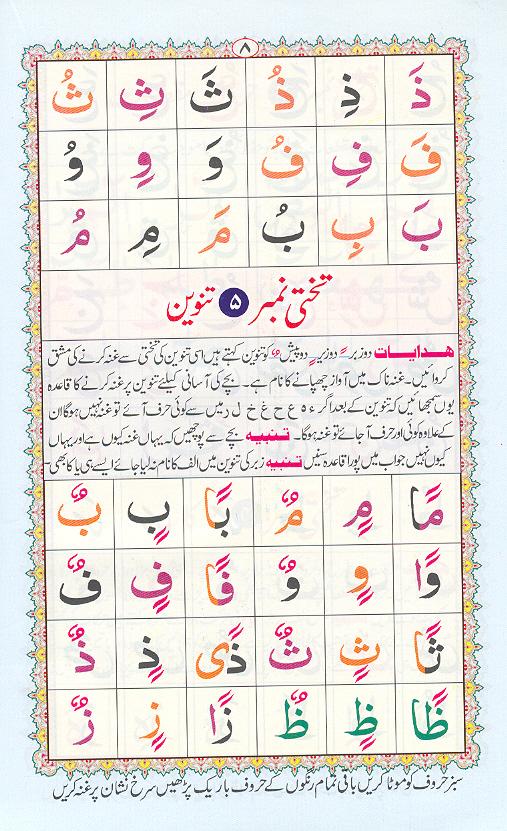 ٨
ذَ ذِ ذُ ثَ ثِ ثُ
فَ فِ فُ وَ وِ وُ
بَ بِ بُ مَ مِ مُ
تختی نمبر ۵ تنوین
ھدایات دو زبر ً دو زیر ٍ دو پیش ٌ کو تنوین کہتے ہیں اسی تنوین کی تختی سے غنہ کرنے کی مشق
کروائیں۔ غنہ ناک میں آواز چھپانے کا نام ہے۔ بچے کی آسانی کیلئے تنوین پر غنہ کرنے کا قاعدہ
یوں سمجھائیں کہ تنوین کے بعد اگر ء ہ ع ح غ خ ل ر میں سے کوئی حرف آئے تو غنہ نہیں ہوگا ان
کے علاوہ کوئی اور حرف آجائے تو غنہ ہوگا۔ تنبیہ بچے سے پوچھیں کہ یہاں غنہ کیوں ہے اور یہاں
کیوں نہیں جواب میں پورا قاعدہ سنیں تنبیہ زبر کی تنوین میں الف کا نام نہ لیا جائے ایسے ہی یا کا بھی
مًا مٍ مٌ بًا بٍ بٌ
وًا وٍ وٌ فًا فٍ فٌ
ثًا ثٍ ثٌ ذًی ذٍ ذٌ
ظًا ظٍ ظٌ زًا زٍ زٌ
سبز حروف کو موٹا کریں باقی تمام رنگوں کے حروف باریک پڑھیں سرخ نشان پر غنہ کریں